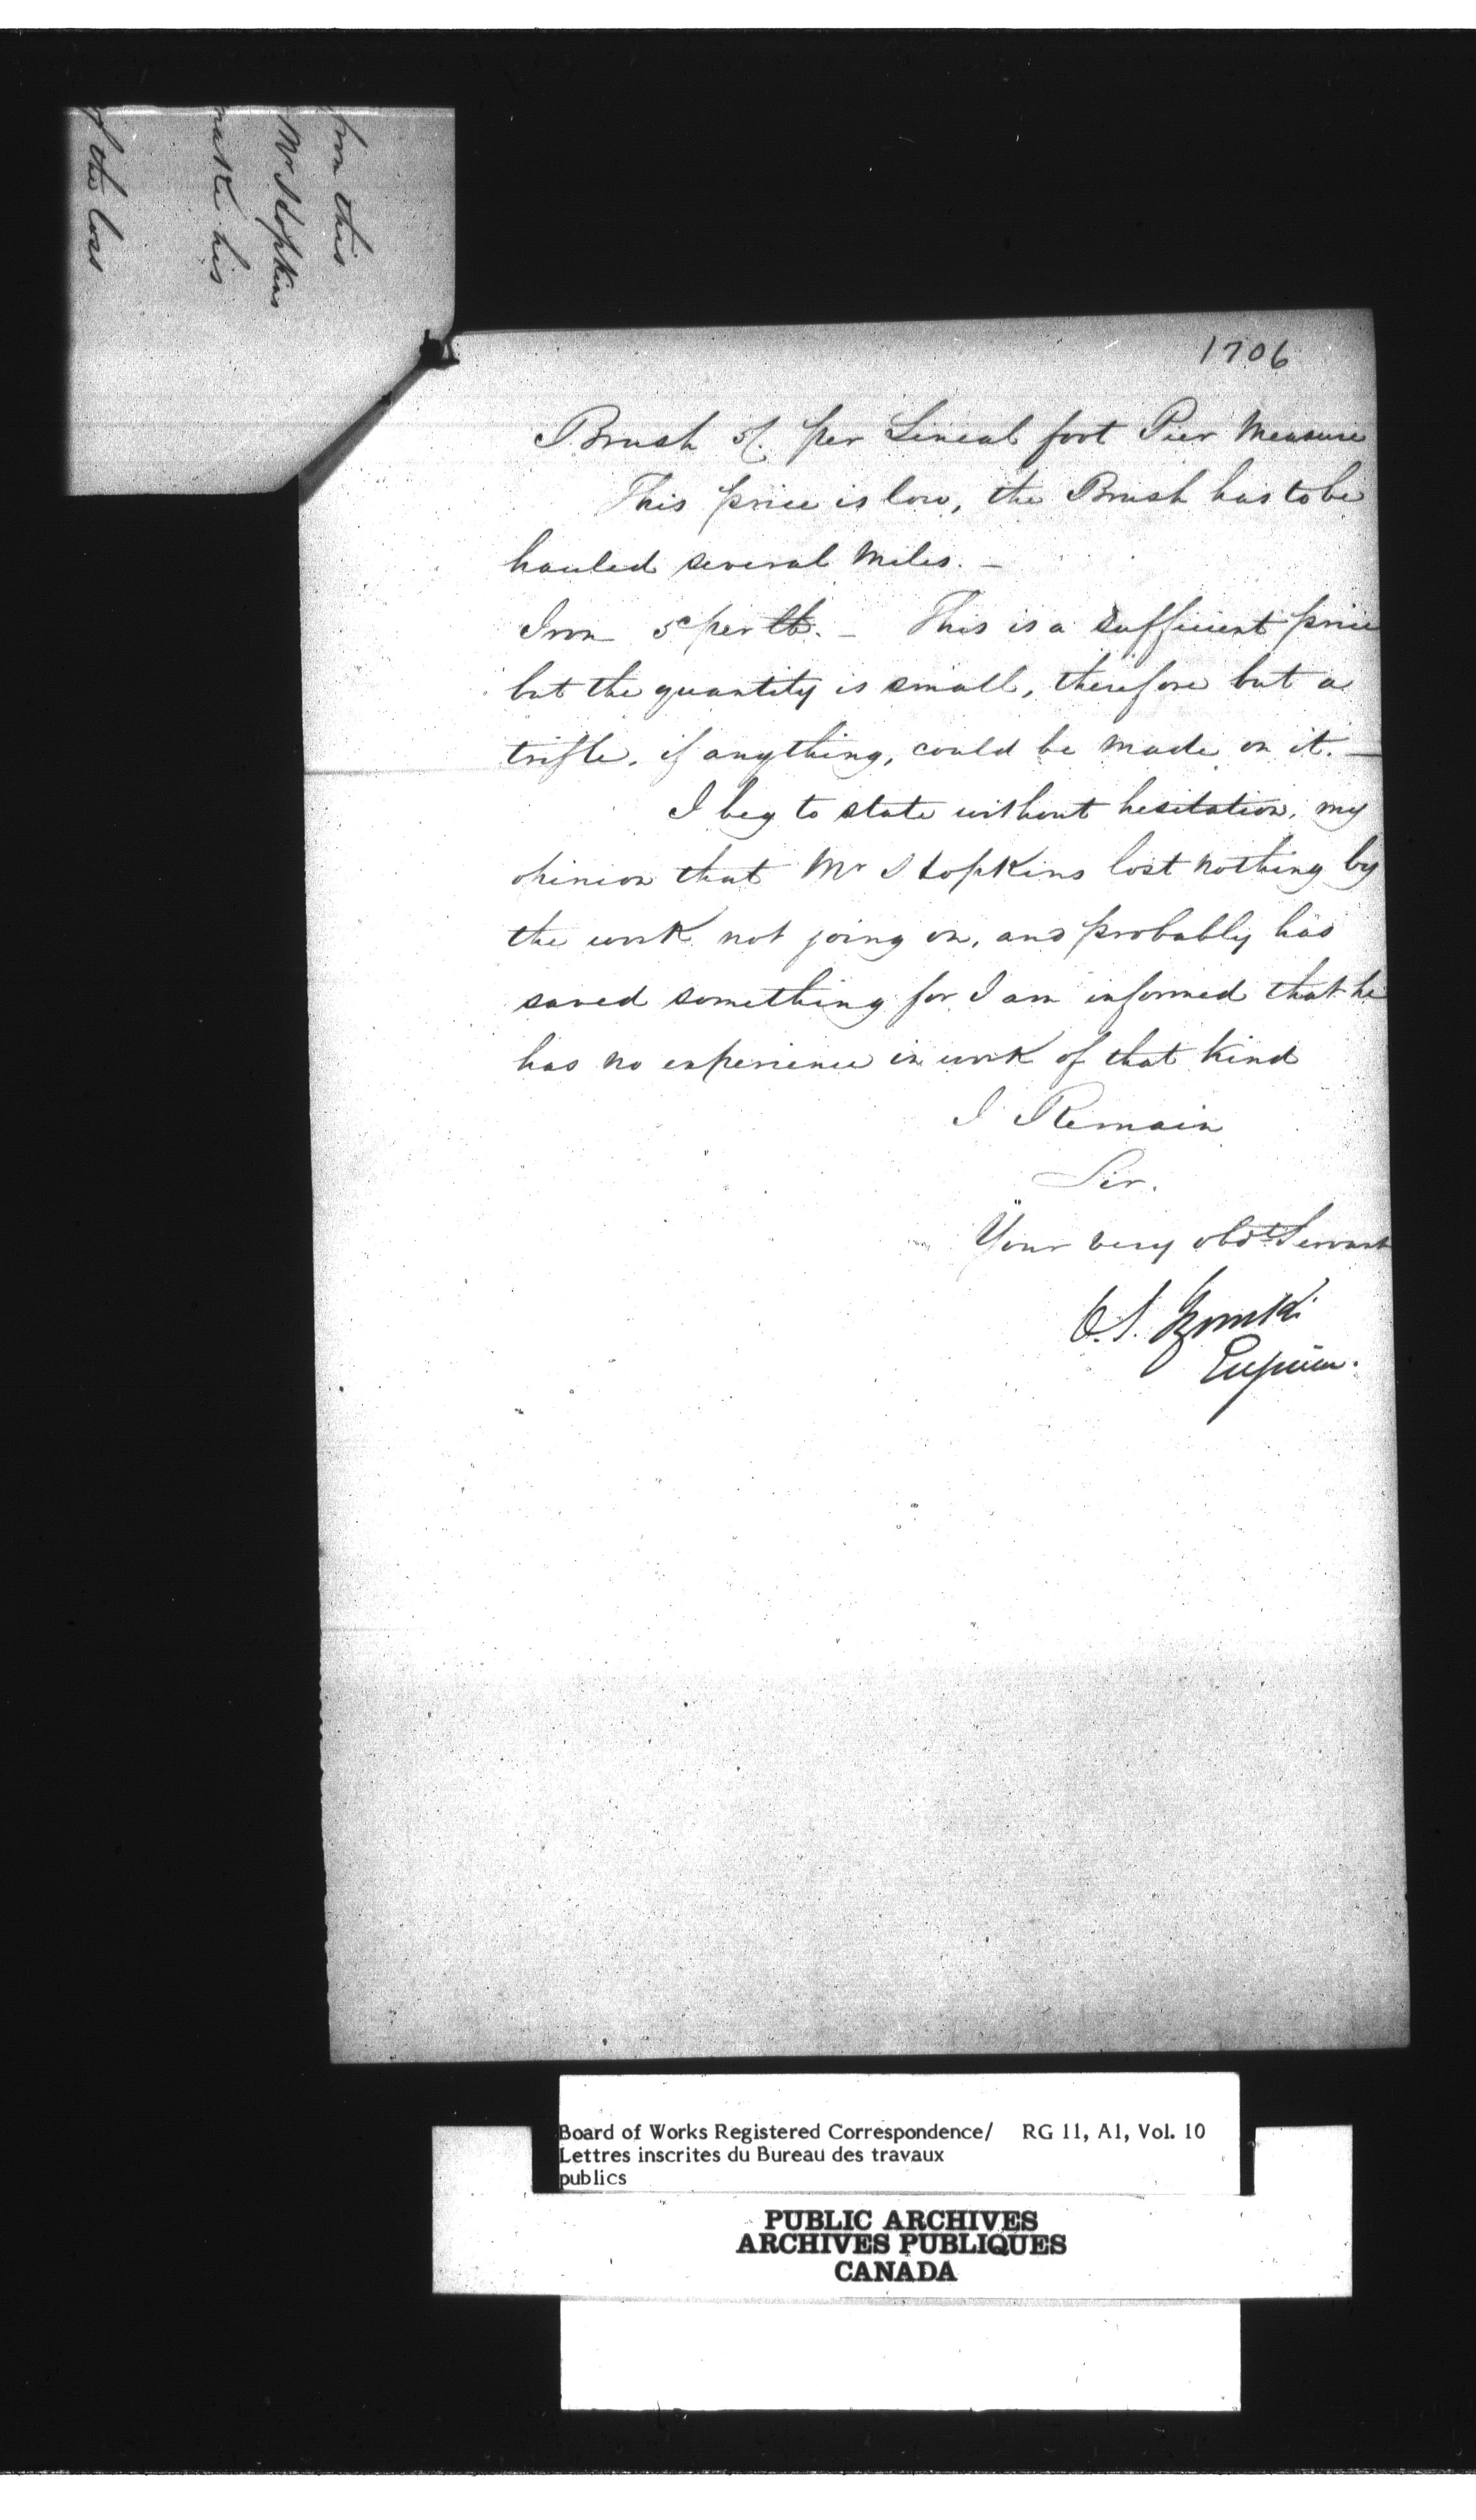 from this
Mr Hopkins
make his
of the loss
1706
Brush 5/. per Lineal foot Pier Measure
This price is low, the Brush has to be
hauled several miles. –
Iron 5d per lb. – This is a sufficient price
but the quantity is small, therefore but a
trifle, if anything, could be made on it. –
I beg to state without hesitation, my
opinion that Mr Hopkins lost nothing by
the work not going on, and probably has
saved something for I am informed that he
has no experience in work of that kind
I Remain
Sir.
Your very obdt Servant
C. S. Gzowski
Engineer.
Board of Works Registered Correspondence/ RG 11, A1, Vol. 10
Lettres inscrites du Bureau des travaux
publics
PUBLIC ARCHIVES
ARCHIVES PUBLIQUES
CANADA